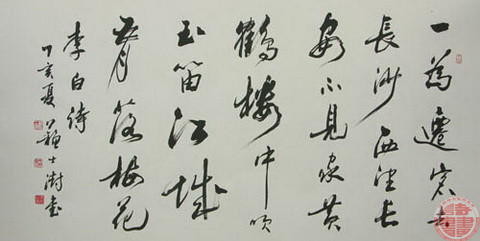 一為遷客去
長沙西望長
安不見家黃
鶴樓中吹
玉笛江城
五月落梅花
李白詩
丁亥夏蘇士澍書